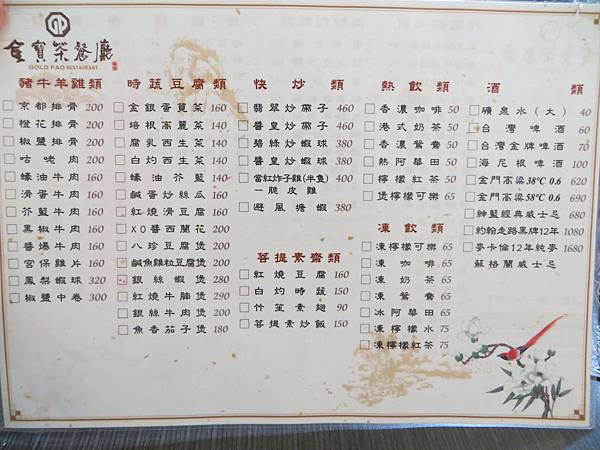 金寶茶餐廳
GOLD PAO RESTAURANT
豬牛羊雞類
京都排骨 200
橙花排骨 200
椒鹽排骨 200
咕老肉 200
蠔油牛肉 160
滑蛋牛肉 160
芥藍牛肉 160
黑椒牛肉 160
醬爆牛肉 160
宮保雞片 160
鳳梨蝦球 320
椒鹽中卷 300
時蔬豆腐類
金銀蛋莧菜 160
培根高麗菜 140
腐乳西生菜 140
白灼西生菜 140
蠔油芥藍 140
鹹蛋炒絲瓜 160
紅燒滑豆腐 160
XO醬西蘭花 200
八珍豆腐煲 200
鹹魚雞粒豆腐煲 200
銀絲蝦煲 280
紅燒牛腩煲 290
銀絲牛肉煲 200
魚香茄子煲 180
快炒類
翡翠炒帶子 460
醬皇炒帶子 460
碧綠炒蝦球 380
醬皇炒蝦球 380
當紅炸子雞(半隻) 400
－脆皮雞
避風塘蝦 380
菩提素齋類
紅燒豆腐 160
白灼時蔬 150
竹笙素翅 90
菩提素炒飯 150
熱飲類
香濃咖啡 50
港式奶茶 50
香濃鴛鴦 50
熱阿華田 50
檸檬紅茶 50
煲檸檬可樂 65
凍飲類
凍檸檬可樂 65
凍咖啡 65
凍奶茶 65
凍鴛鴦 65
冰阿華田 65
凍檸檬水 75
凍檸檬紅茶 75
酒類
礦泉水(大) 40
台灣啤酒 60
台灣金牌啤酒 70
海尼根啤酒 100
金門高粱38°C 0.6 620
金門高粱58°C 0.6 690
紳藍經典威士忌 680
約翰走路黑牌12年 1080
麥卡倫12年純麥 1680
蘇格蘭威士忌